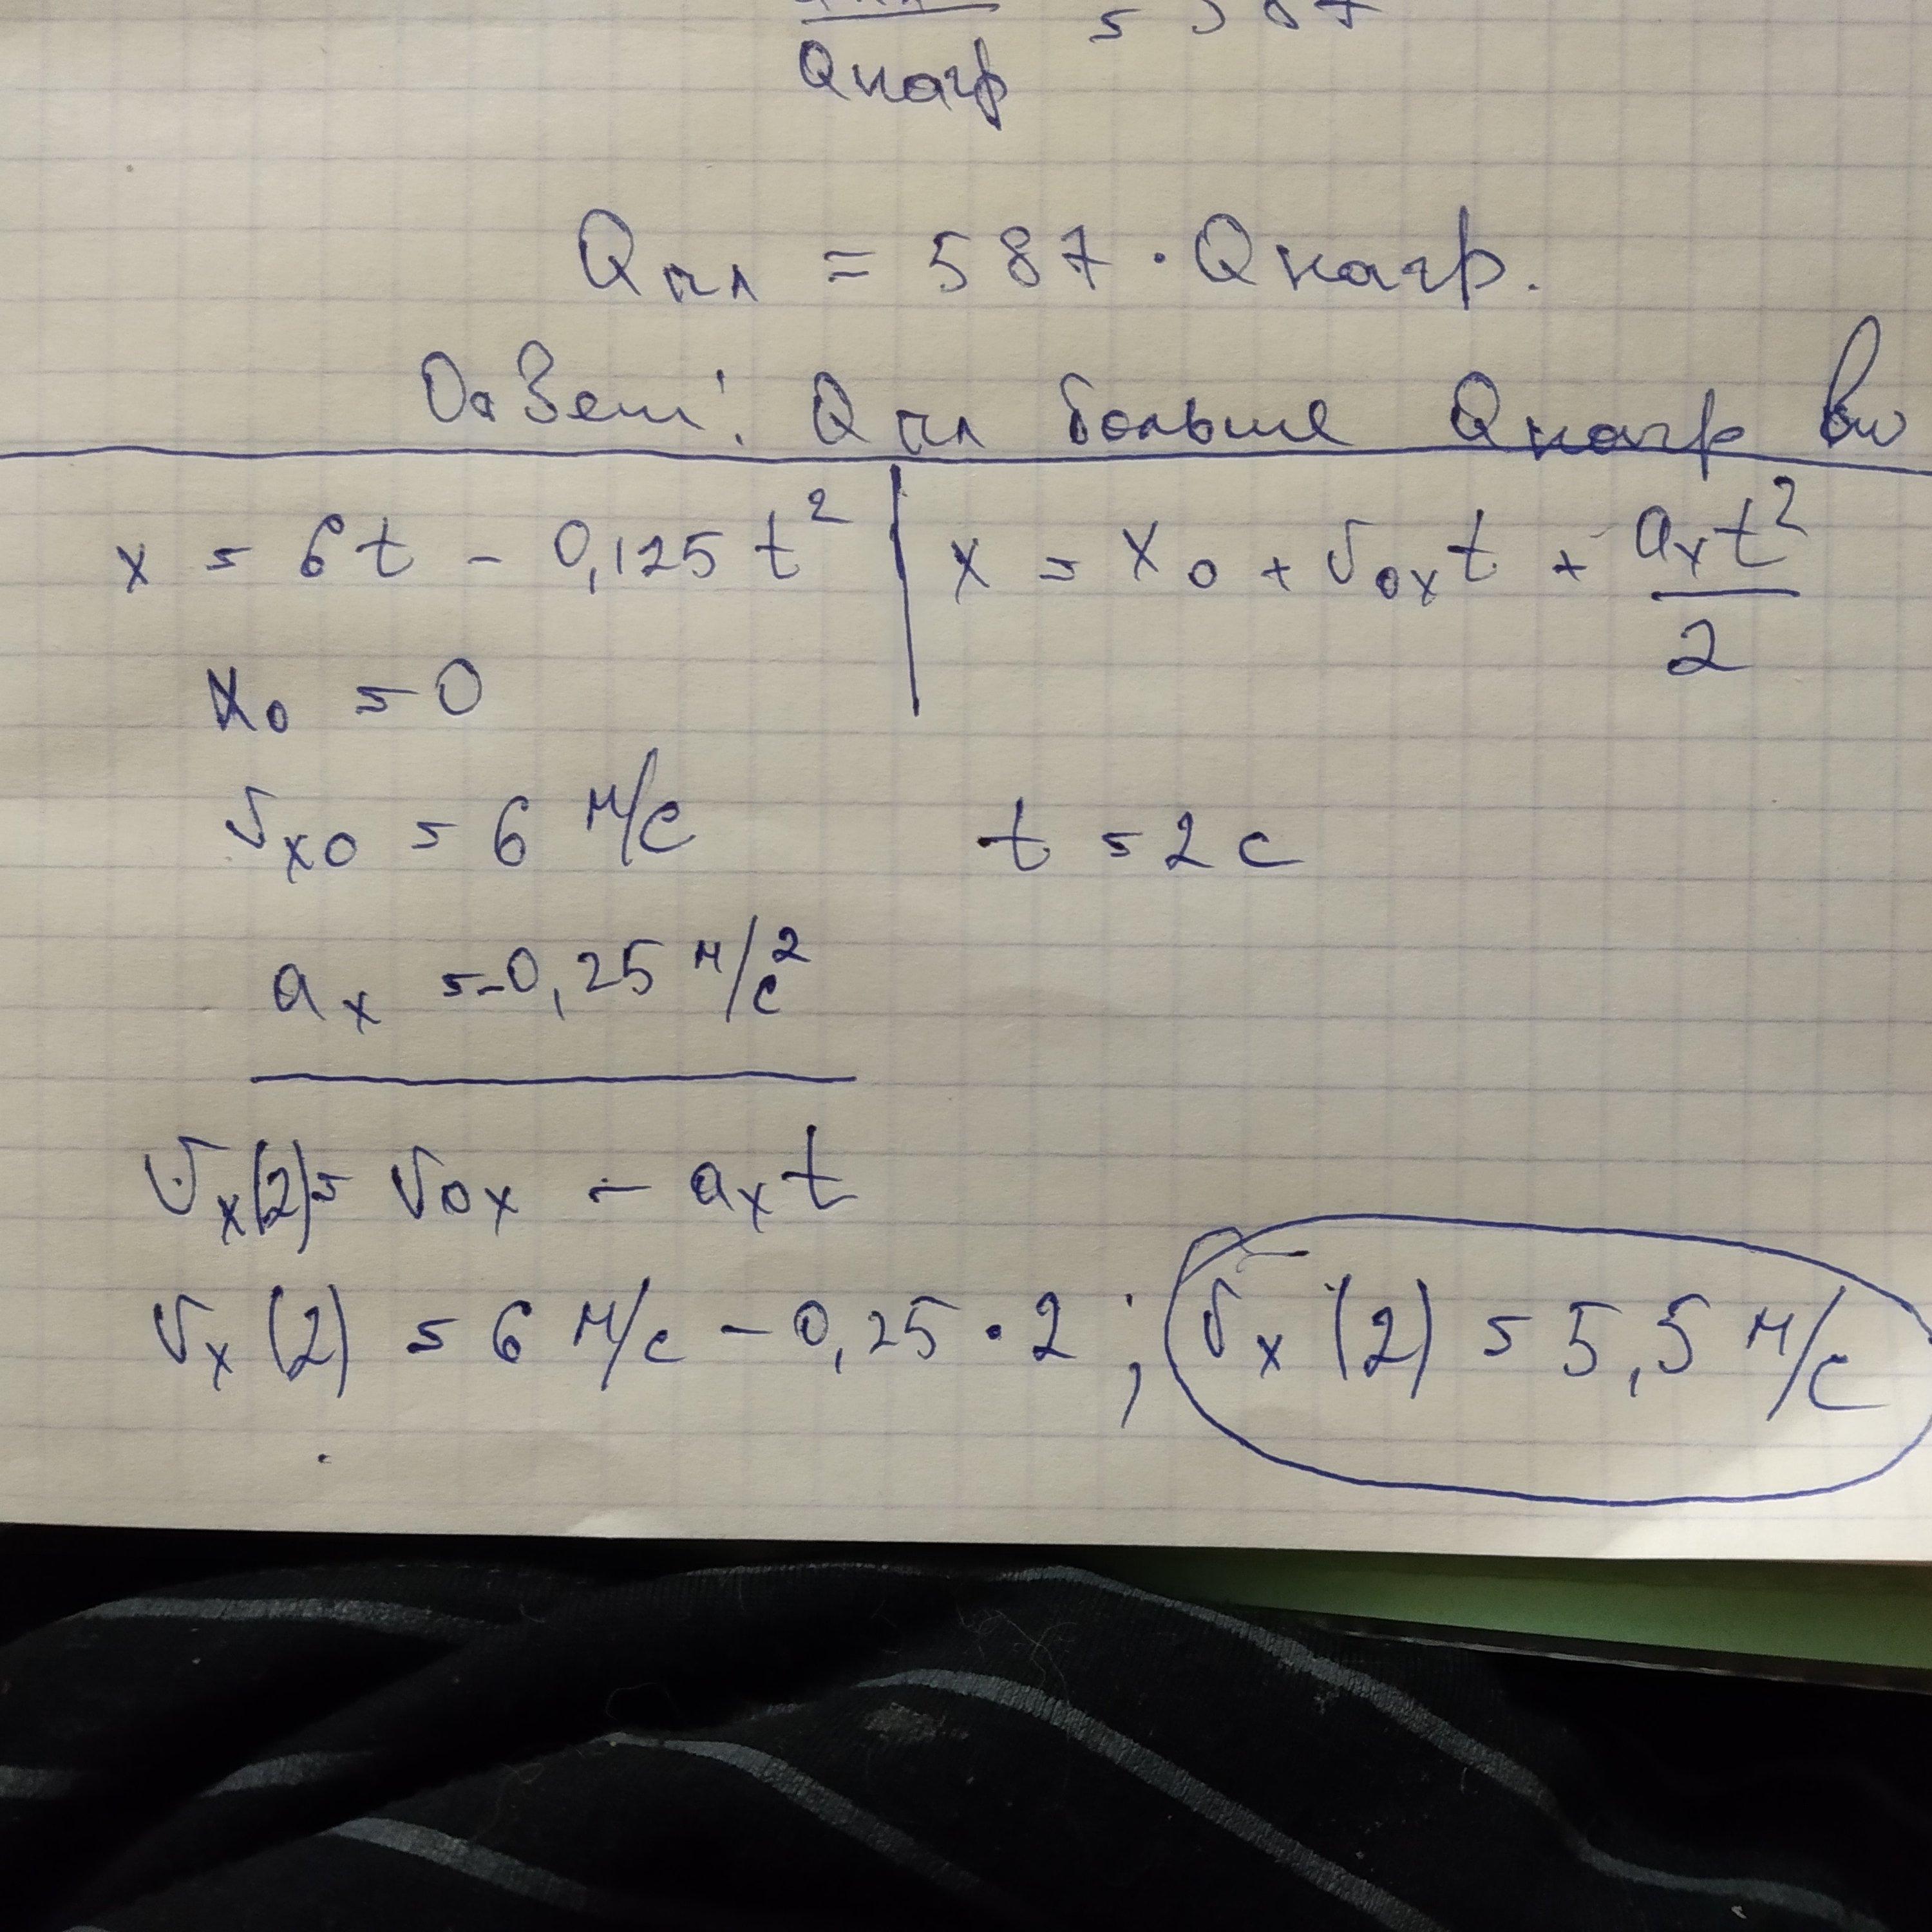 Qнагр = 587
Qпл = 587 · Qнагр.
Ответ: Qпл больше Qнагр во
x = 6t - 0,125t² | x = x₀ + v₀ₓt + aₓt²/2
x₀ = 0
vₓ₀ = 6 м/с t = 2 с
aₓ = -0,25 м/с²
vₓ(2) = v₀ₓ - aₓt
vₓ(2) = 6 м/с - 0,25 · 2 ; vₓ(2) = 5,5 м/с